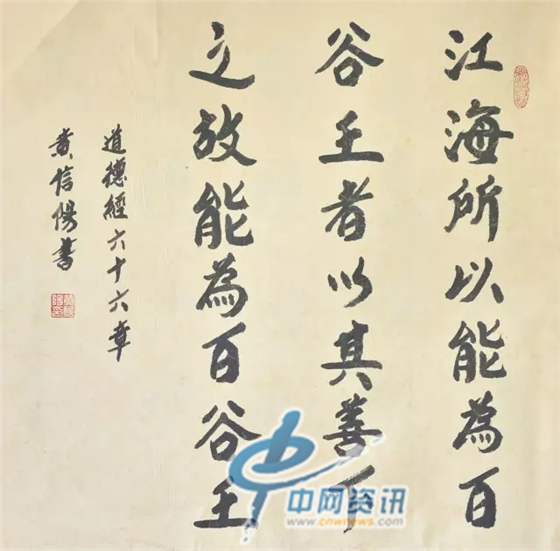 江海所以能為百
谷王者以其善下
之故能為百谷王
道德經六十六章
黄信陽書
中网资讯
www.cnwnews.com